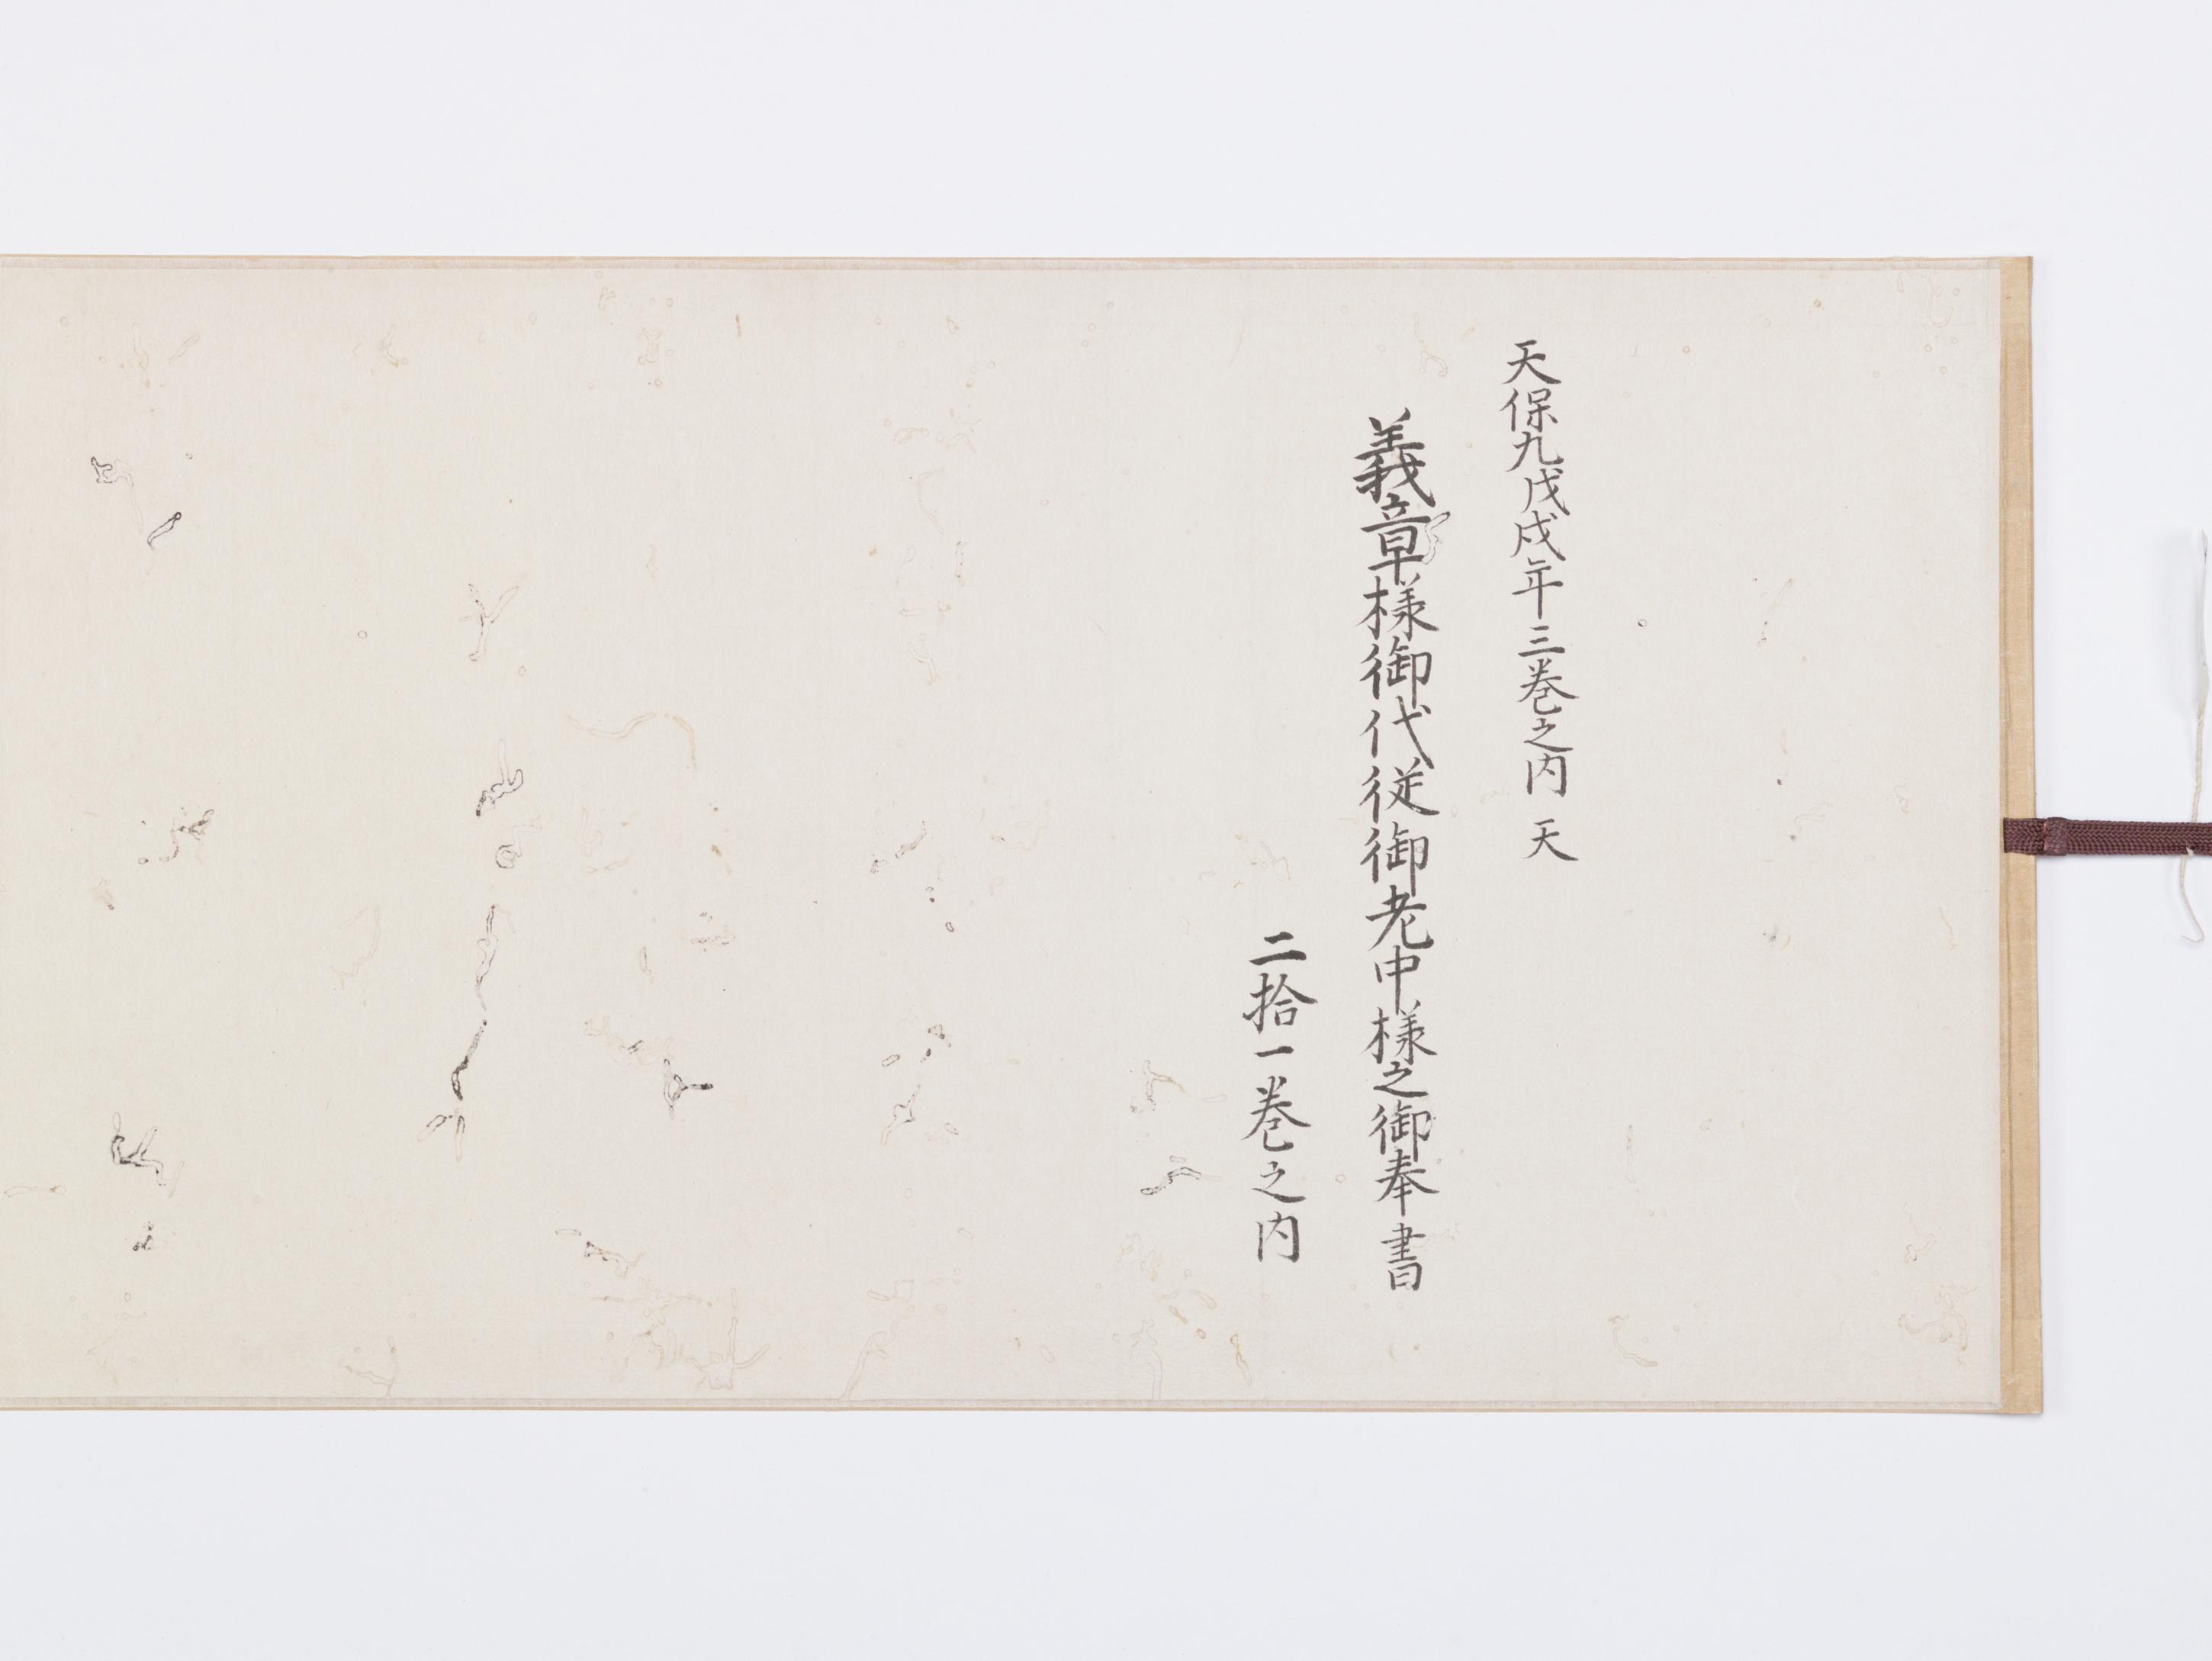 天保九戊戌年三巻之内 天
義章様御代従御老中様之御奉書
二拾一巻之内